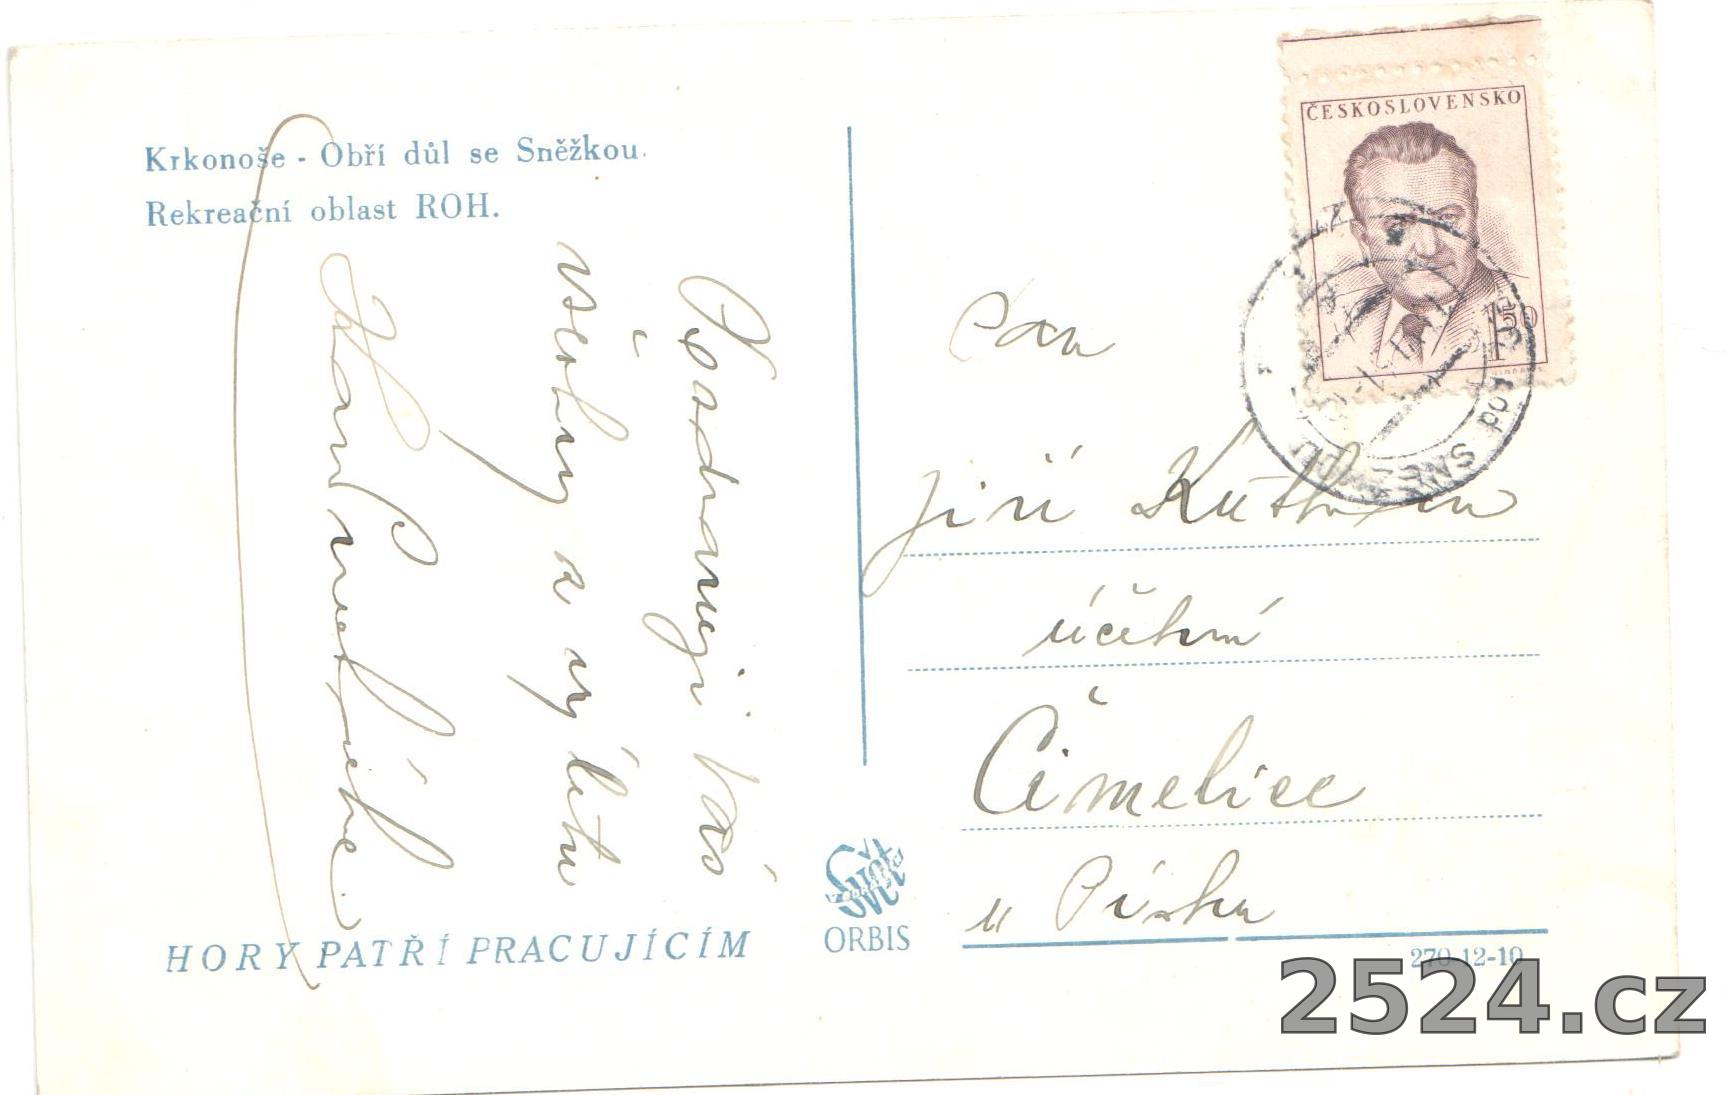 Krkonoše - Obří důl se Sněžkou.
Rekreační oblast ROH.
Pozdravuji Vás
všechny a vy létu
HORY PATŘÍ PRACUJÍCÍM
Svět
ORBIS
ČESKOSLOVENSKO
1.50
pod SNĚŽKOU
Pan
Jiří
účetní
Čimelice
u Písku
270-12-10
2524.cz